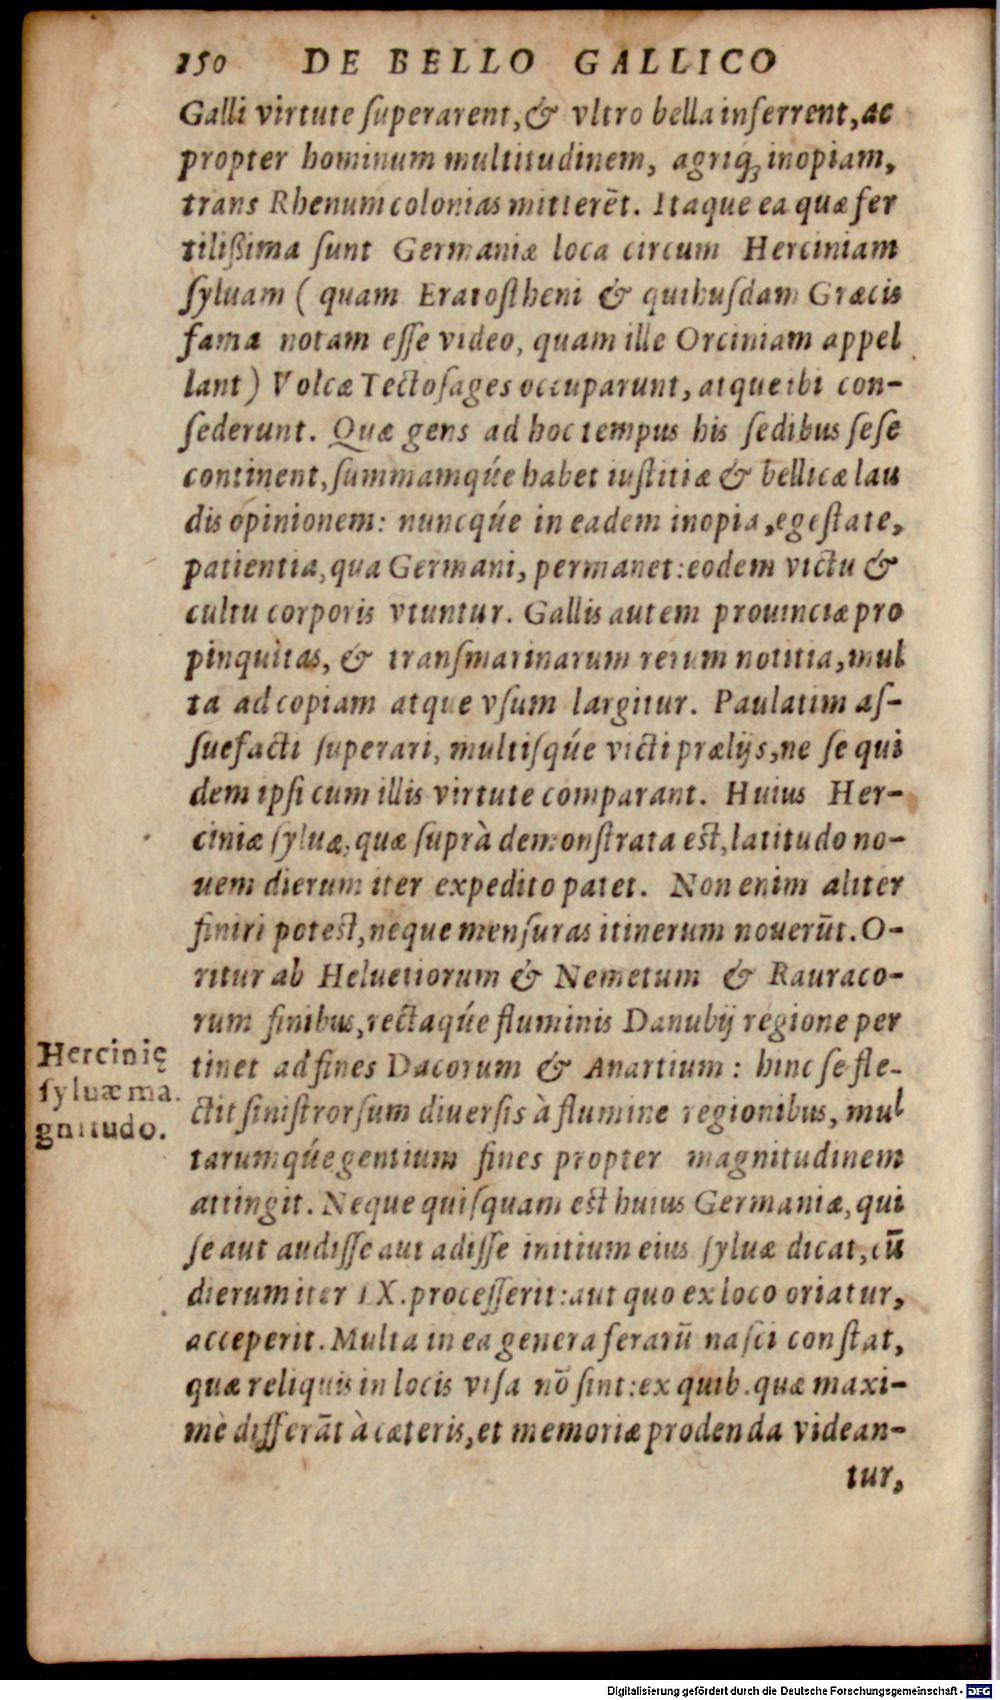 150 DE BELLO GALLICO
Galli virtute ſuperarent, & vltro bella inferrent, ac
propter hominum multitudinem, agriq́ꝫ inopiam,
trans Rhenum colonias mitterēt. Itaque ea quæ fer
tiliſſima ſunt Germaniæ loca circum Herciniam
ſyluam ( quam Eratoſtheni & quibuſdam Græcis
fama notam eſſe video, quam ille Orciniam appel
lant ) Volcæ Tectoſages occuparunt, atque ibi con-
ſederunt. Quæ gens ad hoc tempus his ſedibus ſeſe
continent, ſummamq́ue habet iuſtitiæ & bellicæ lau
dis opinionem: nuncq́ue in eadem inopia, egeſtate,
patientia, qua Germani, permanet: eodem victu &
cultu corporis vtuntur. Gallis autem prouinciæ pro
pinquitas, & tranſmarinarum rerum notitia, mul
ta ad copiam atque vſum largitur. Paulatim aſ-
ſuefacti ſuperari, multiſq́ue victi prælijs, ne ſe qui
dem ipſi cum illis virtute comparant. Huius Her-
ciniæ ſyluæ, quæ ſuprà demonſtrata eſt, latitudo no-
uem dierum iter expedito patet. Non enim aliter
finiri poteſt, neque menſuras itinerum nouerūt. O-
ritur ab Heluetiorum & Nemetum & Rauraco-
rum finibus, rectaq́ue fluminis Danubij regione per
tinet ad fines Dacorum & Anartium : hinc ſe fle-
ctit ſiniſtrorſum diuerſis à flumine regionibus, mul
tarumq́ue gentium fines propter magnitudinem
attingit. Neque quiſquam eſt huius Germaniæ, qui
ſe aut audiſſe aut adiſſe initium eius ſyluæ dicat, cū
dierum iter LX. proceſſerit: aut quo ex loco oriatur,
acceperit. Multa in ea genera ferarū naſci conſtat,
quæ reliquis in locis viſa nō ſint: ex quib. quæ maxi-
mè differāt à cæteris, et memoriæ prodenda videan-
tur,
Hercinię
ſyluæ ma.
gnitudo.
Digitalisierung gefördert durch die Deutsche Forschungsgemeinschaft - DFG